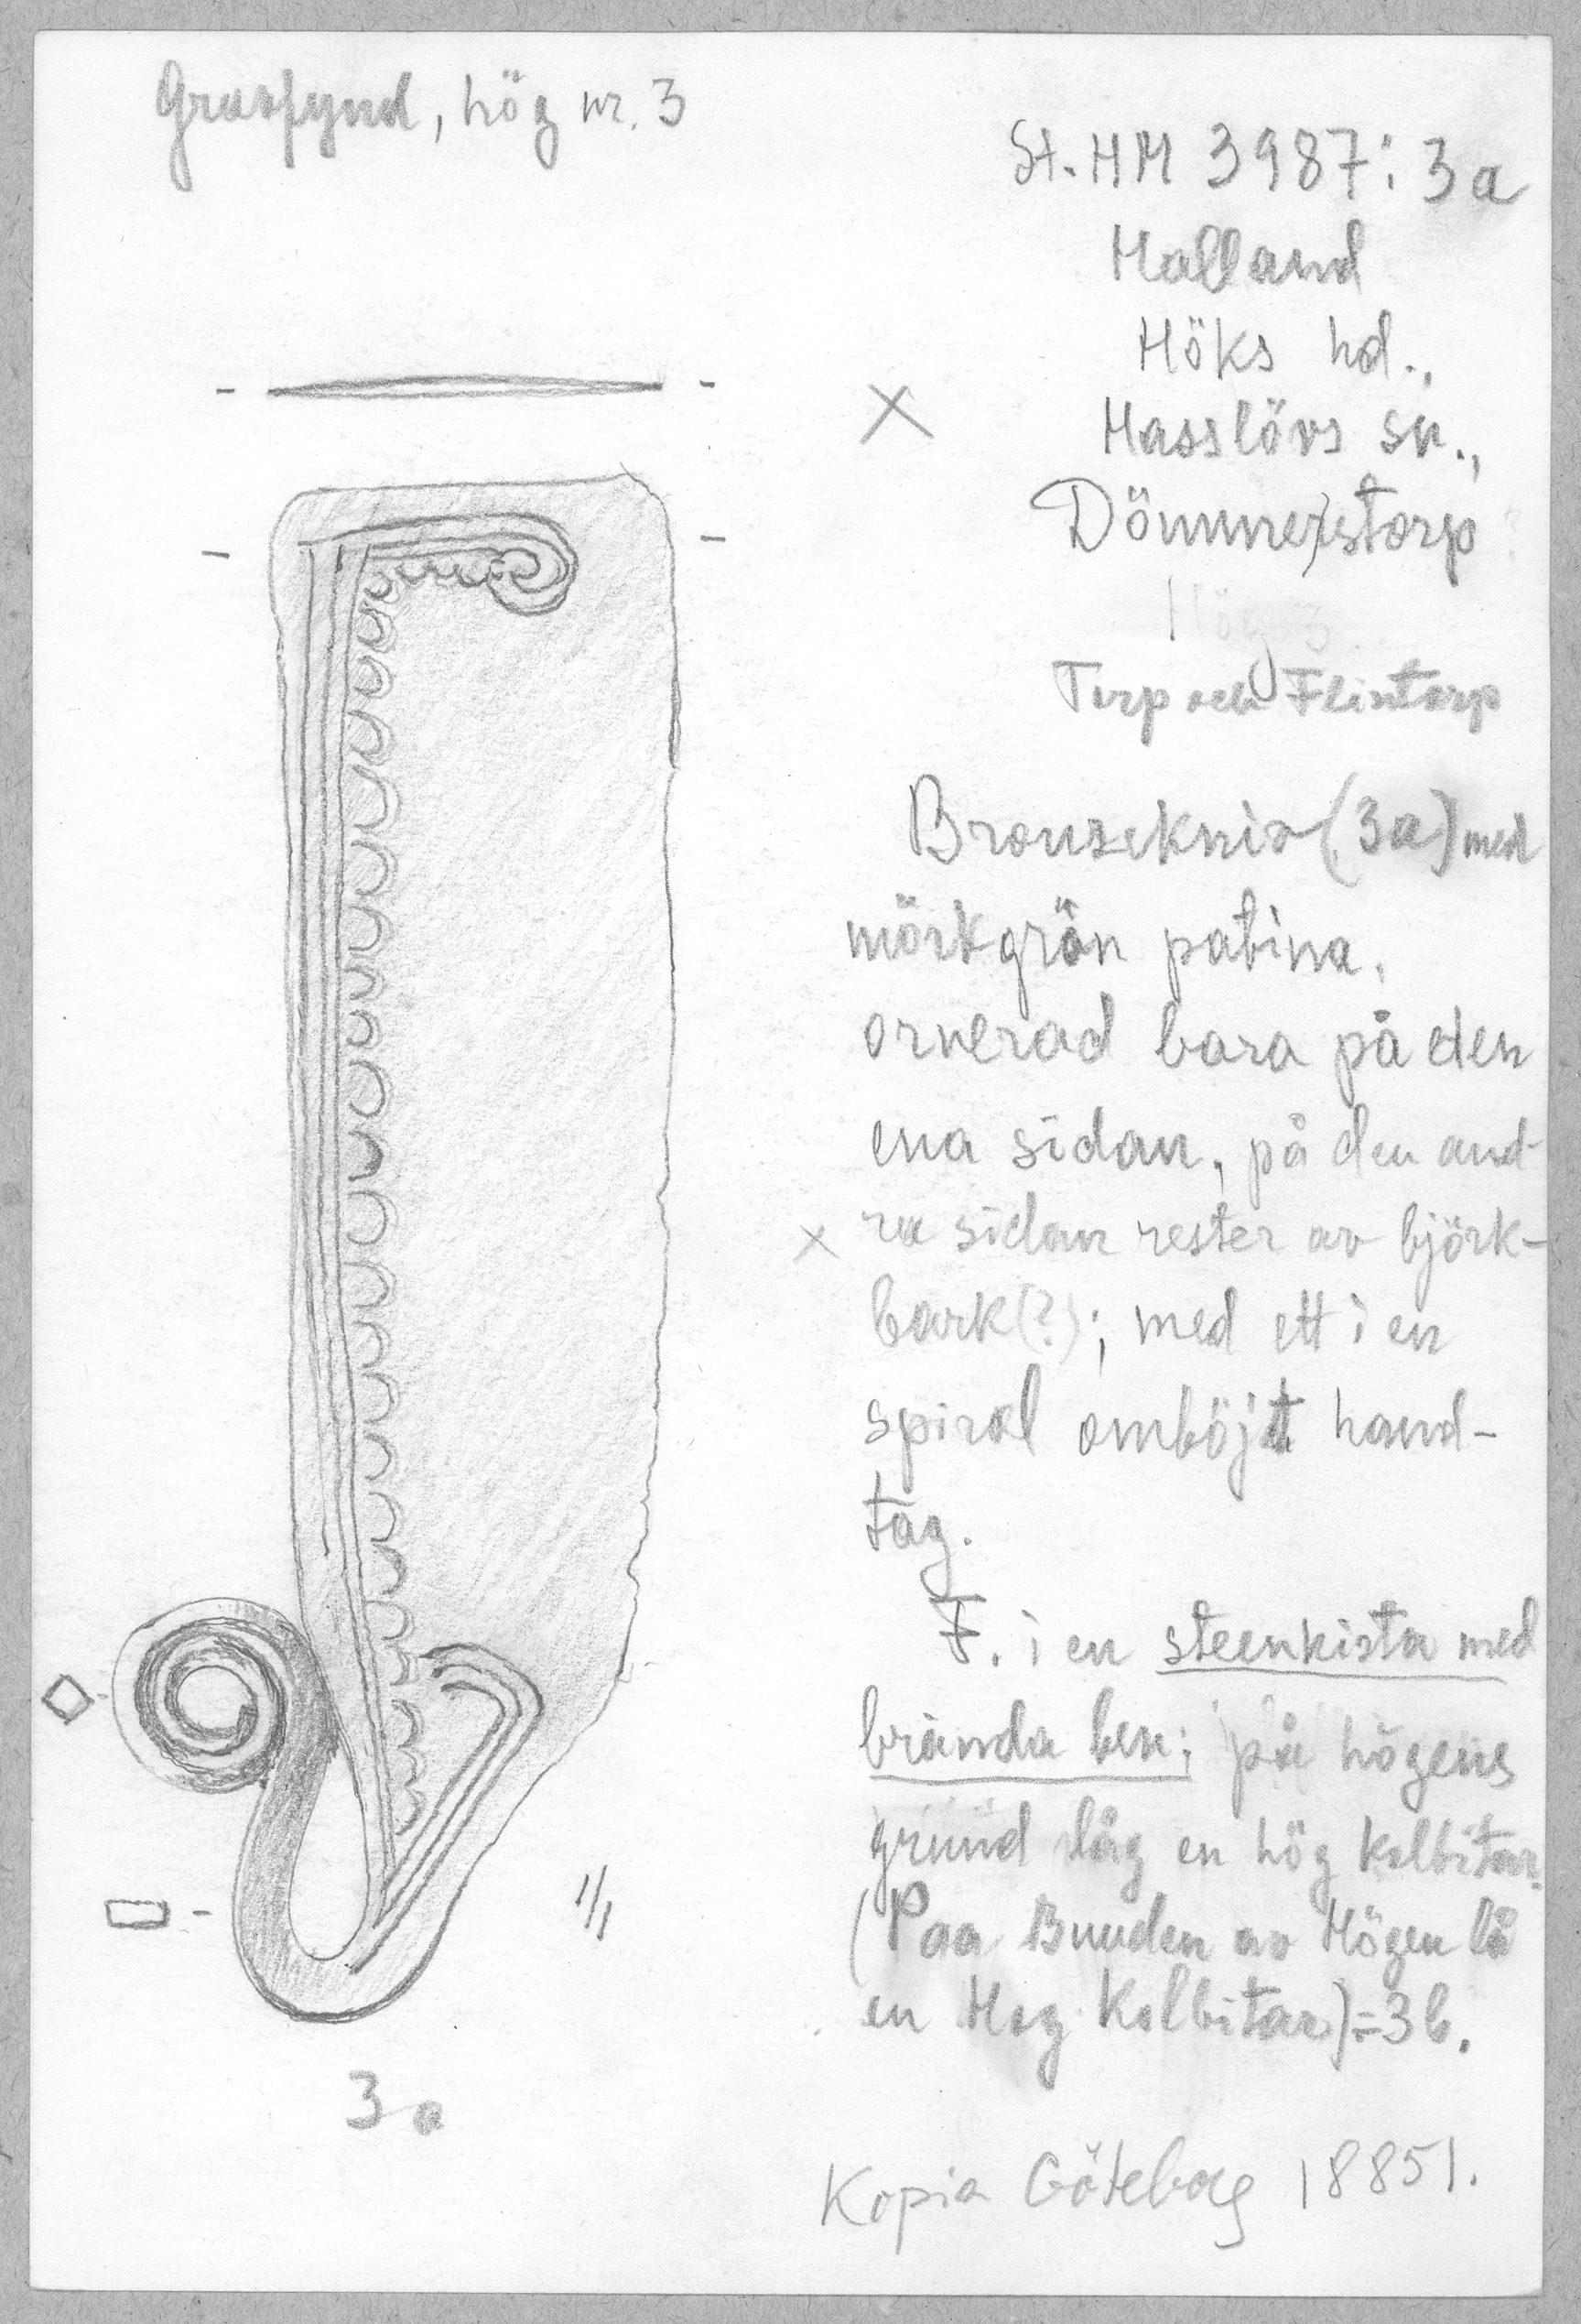 Gravfynd, hög nr. 3
St. HM 3987: 3a
Halland
Höks hd.,
Hasslövs sn.,
Dömmestorp
Hög 3
Torp och Flintorp
Bronzekniv (3a) med
mörkgrön patina,
ornerad bara på den
ena sidan, på den and-
ra sidan rester av björk-
bark(?); med ett i en
spiral omböjt hand-
tag.
F. i en steenkista med
brända ben; på högens
grund låg en hög kolbitar.
(Paa Bunden av Högen lå
en Hog Kolbitar)=3b.
1/1
3a
Kopia Göteborg 18851.